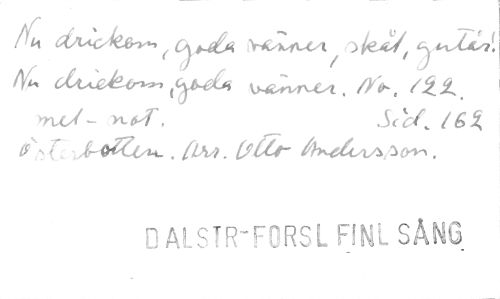 Nu drickom, goda vänner, skål, gutår!
Nu drickom, goda vänner. No. 122.
mel-not. Sid. 162
Österbotten. Arr. Otto Andersson.
DALSTR-FORSL FINL SÅNG